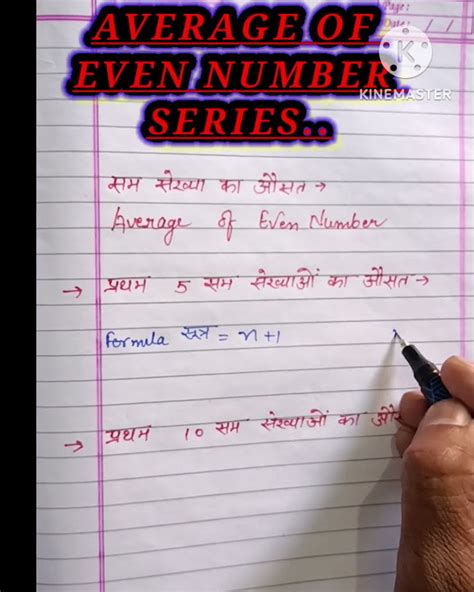 Page:
Date: / /
AVERAGE OF
EVEN NUMBER
SERIES..
KINEMASTER
सम संख्या का औसत →
Average of Even Number
→ प्रथम 5 सम संख्याओं का औसत →
Formula सूत्र = n+1
→ प्रथम 10 सम संख्याओं का